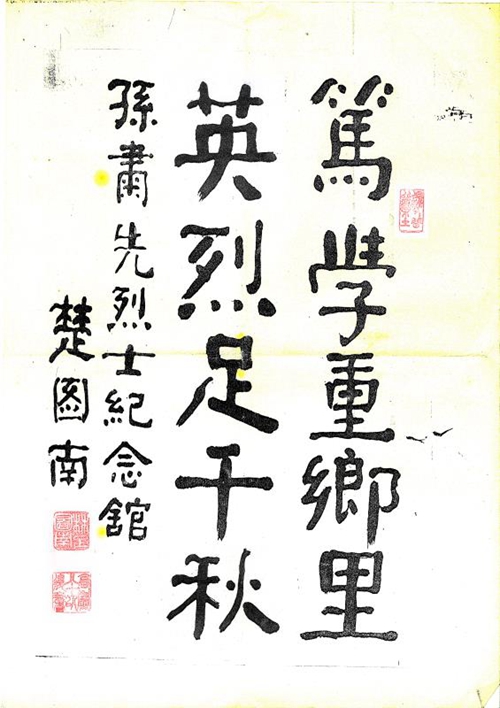 篤學重鄉里
英烈足千秋
孫肅先烈士紀念舘
楚圖南